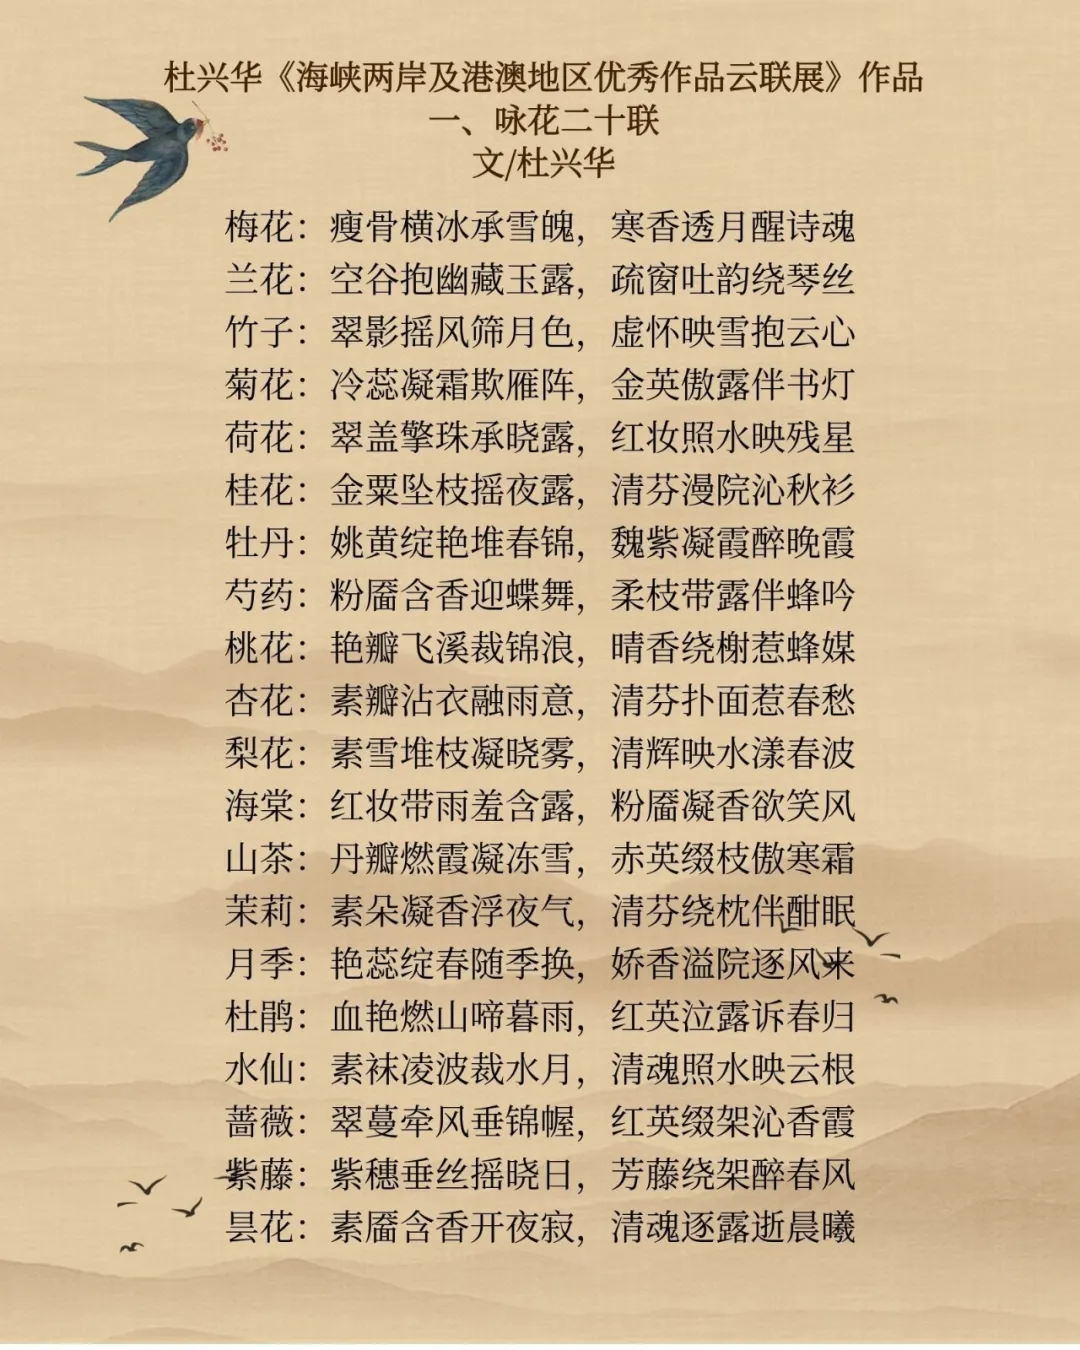 杜兴华《海峡两岸及港澳地区优秀作品云联展》作品
一、咏花二十联
文/杜兴华
梅花：瘦骨横冰承雪魄，寒香透月醒诗魂
兰花：空谷抱幽藏玉露，疏窗吐韵绕琴丝
竹子：翠影摇风筛月色，虚怀映雪抱云心
菊花：冷蕊凝霜欺雁阵，金英傲露伴书灯
荷花：翠盖擎珠承晓露，红妆照水映残星
桂花：金粟坠枝摇夜露，清芬漫院沁秋衫
牡丹：姚黄绽艳堆春锦，魏紫凝霞醉晚霞
芍药：粉靥含香迎蝶舞，柔枝带露伴蜂吟
桃花：艳瓣飞溪裁锦浪，晴香绕榭惹蜂媒
杏花：素瓣沾衣融雨意，清芬扑面惹春愁
梨花：素雪堆枝凝晓雾，清辉映水漾春波
海棠：红妆带雨羞含露，粉靥凝香欲笑风
山茶：丹瓣燃霞凝冻雪，赤英缀枝傲寒霜
茉莉：素朵凝香浮夜气，清芬绕枕伴酣眠
月季：艳蕊绽春随季换，娇香溢院逐风来
杜鹃：血艳燃山啼暮雨，红英泣露诉春归
水仙：素袜凌波裁水月，清魂照水映云根
蔷薇：翠蔓牵风垂锦幄，红英缀架沁香霞
紫藤：紫穗垂丝摇晓日，芳藤绕架醉春风
昙花：素靥含香开夜寂，清魂逐露逝晨曦